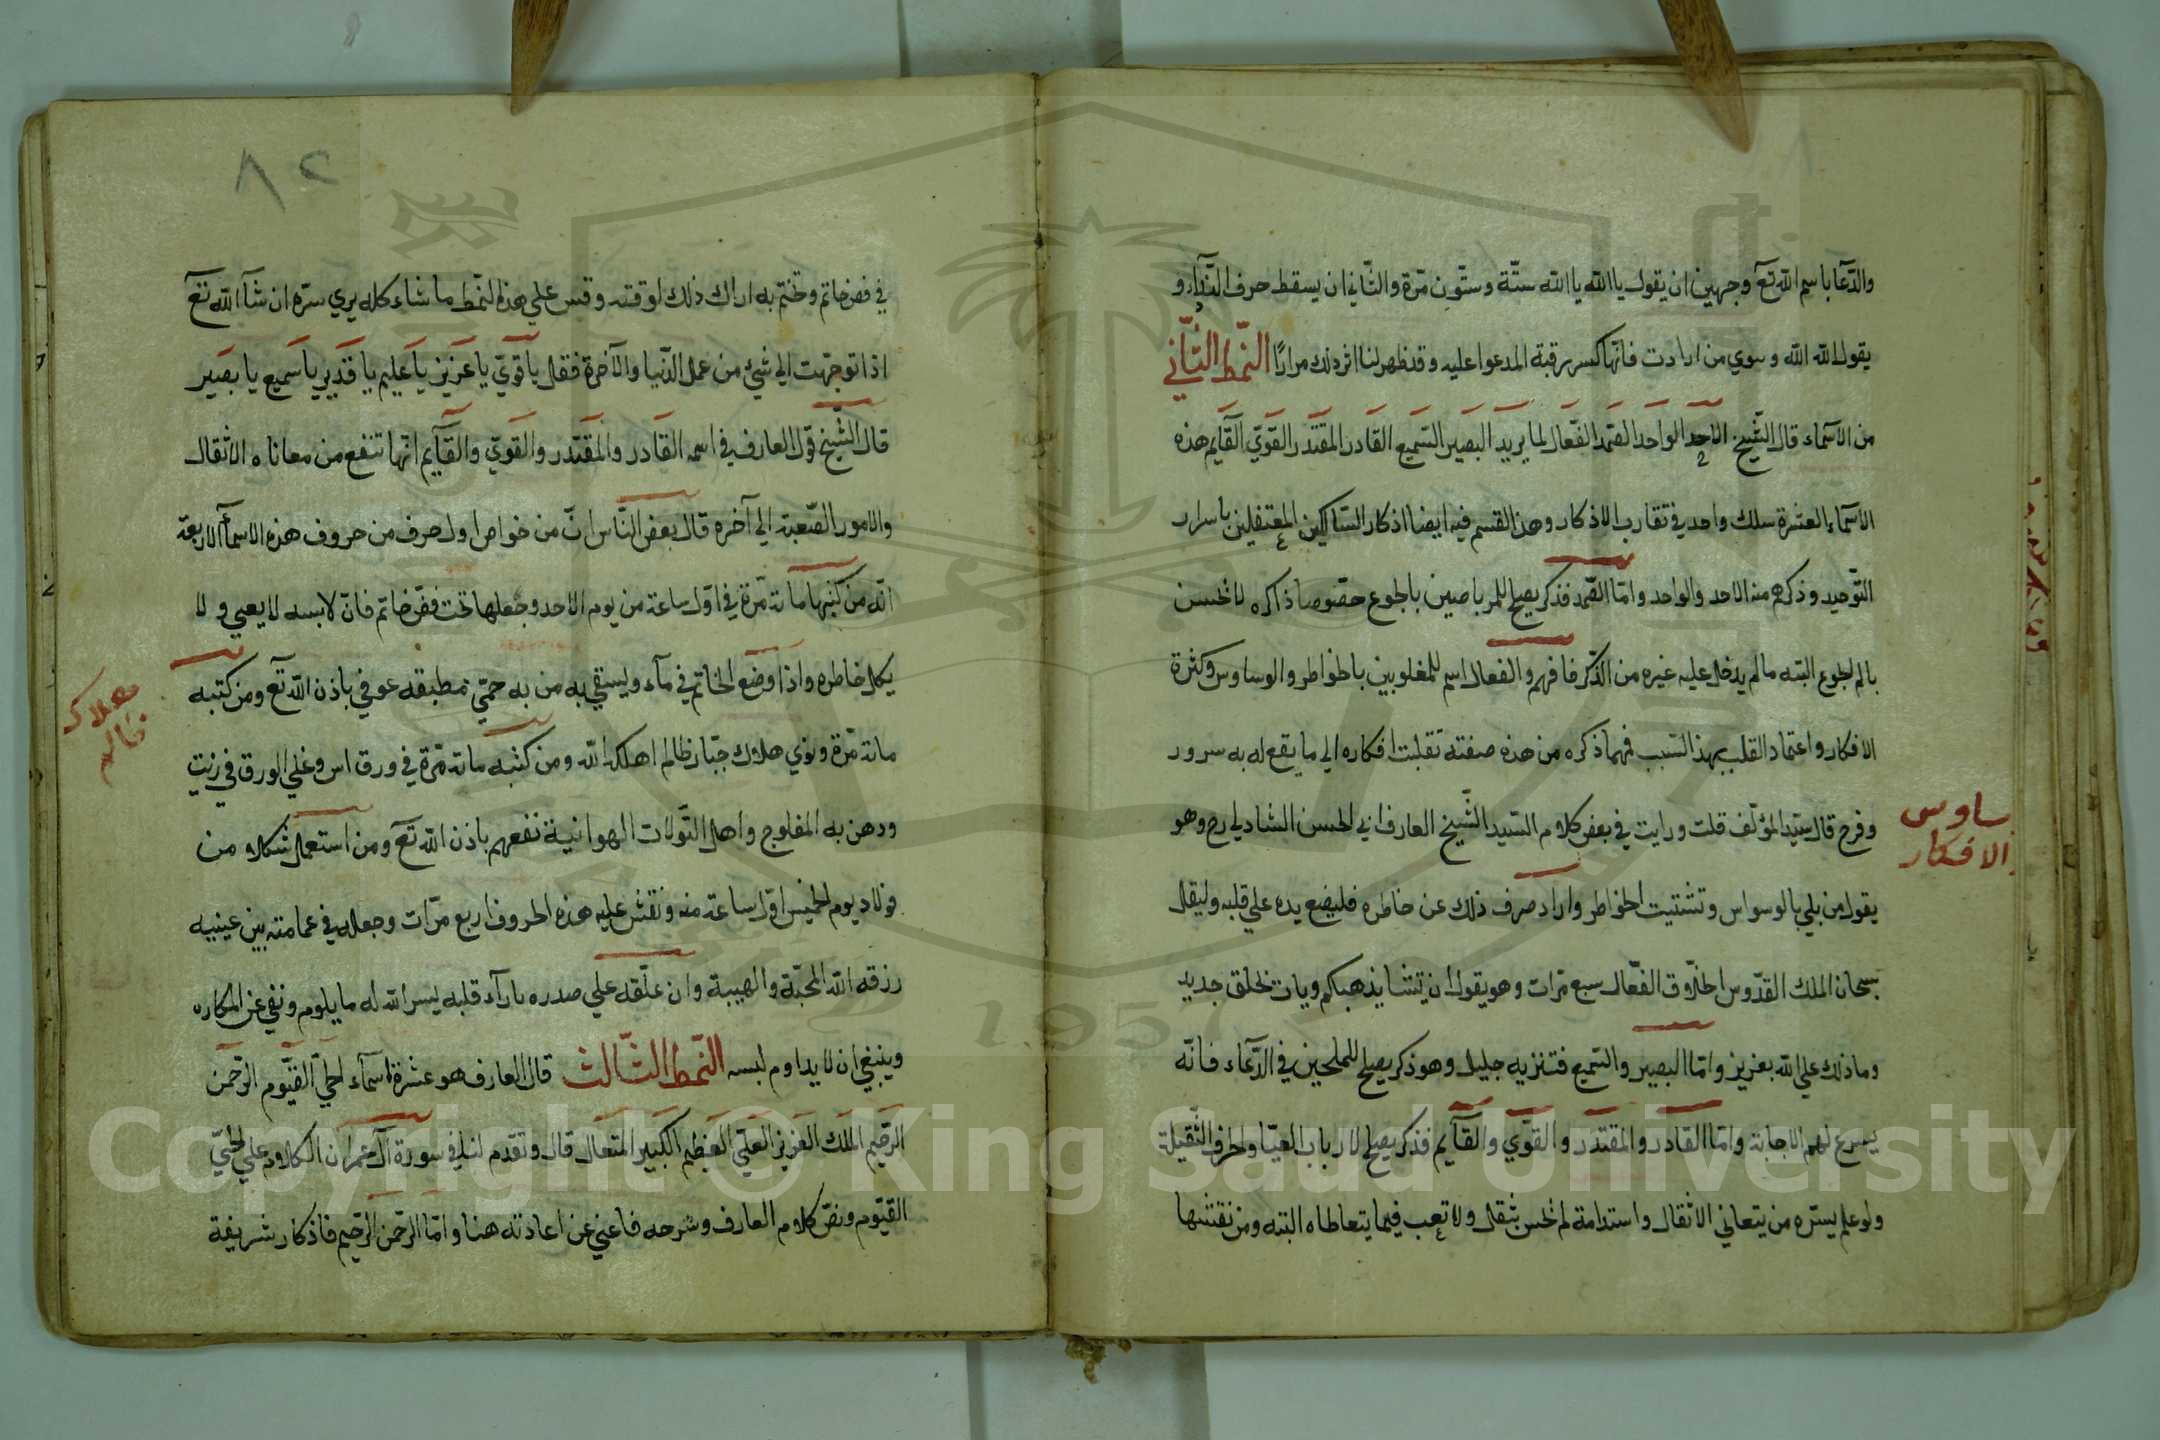 والدّعا باسم الله تعٓ وجهين ان يقول يا الله يا الله ستّة وستّون مرّة والثّاني ان يسقط حرف النّداء و
يقول الله الله وسوي من ارادت فانها كسر رقبة المدعوا عليه وقد ظهر لنا اثر ذلك مرارًا النّمط الثّاني
من الاسماء قال الشّيخ الاحد الواحد الصّمد الفعّال لما يريد البصير السّميع القادر المقتدر القويّ القآيم هذه
الاسماء العشرة سلك واحد في تقارب الاذكار وهذا القسم فيه ايضا اذكار السّالكين المعتقلين باسرار
التّوحيد وذكرهم منه الاحد والواحد وامّا الصّمد فذكر يصلح للمرباضين بالجوع خصوصا ذاكره لا يحسن
بالم الجوع البته مالم يدخل عليه غيره من الذّكر فافهم والفعال اسم للمغلوبين بالخواطر والوساوس وكثرة
الافكار واعتماد القلب بهذا السّبب فمهما ذكره من هذه صفته تقلبت افكاره الي ما يقع له به سرور
وفرح قال سيّد المؤلّف قلت ورايت في بعض كلام السّيد الشّيخ العارف ابي الحسن الشاذلي رح وهو
ساوس
الافكار
يقول من بلي بالوسواس وتشتيت الخواطر واراد صرف ذلك عن خاطره فليضع يده علي قلبه وليقل
سبحان الملك القدّوس الخلّاق الفعّال سبع مرّات وهو يقول ان يّشا يذهبكم ويات بخلق جديد
وما ذلك علي الله بعزيز وامّا البصير والسّميع فتنزيه جليل وهو ذكر يصلح للملحين في الدّعاء فانّه
يسرع لهم الاجابة وامّا القادر والمقتدر والقوّي والقآيم فذكر يصلح لارباب العيّا والحرف الثّقيلة
ولو علم بسرّه من يتعاني الاثقال واستدامة لم يحس بثقل ولا تعب فيما يتعاطاه البته ومن نقشها
٨٢
في فص خاتم وتختم به ادرك ذلك لوقته وقس علي هذه النّمط ما شاء كله يري سرّه ان شآ الله تعٓ
اذا توجهت الي شيء من عمل الدّنيا والآخرة فقل يا قويّ يا عزيز يا عليم يا قدير يا سميع يا بصير
قال الشّيخ قول العارف في اسمه القادر والمقتدر والقويّ والقآيم انّها تنفع من معاناه الاثقال
والامور الصّعبة الي آخره قال بعض النّاس انّ من خواص اول حرف من حروف هذه الاسمآ الاربعة
انّه من كتبها مائة مرّة في اوّل ساعة من يوم الاحد وجعلها تحت فصّ خاتم فانّ لابسه لا يعيي ولا
يكل خاطره واذا وضع الخاتم في مآء ويسقي به من به حمّي مطبقه عوفي باذن الله تعٓ ومن كتبه
هلاك
ظالم
مائة مرّة ونوي هلاك جبّار ظالم اهلكه الله ومن كتبه مائة مرّة في ورق اس وغلي الورق في زيت
ودهن به المفلوج واهل التّولات الهوانية نفعهم باذن الله تعٓ ومن استعمل شكلا من
فولاد يوم الخميس اوّل ساعة منه ونقش عليه هذه الحروف اربع مرّات وجعله في عمامته بين عينيه
رزقه الله المحبّة والهيبة وان علّقه علي صدره بازآء قلبه يسر الله له ما يلوم ونفي عن المكاره
وينبغي ان لا يداوم لبسه النّمط الثّالث قال العارف هو عشرة اسمآء الحيّ القيّوم الرّحمن
الرّحيم الملك العزيز العليّ العظيم الكبير المتعال قال وتقدم لنا في سورة آل عمران الكلام علي الحيّ
القيّوم ونصّ كلام العارف وشرحه فاغني عن اعادته هنا وامّا الرّحمن الرّحيم فاذكار شريفة
Copyright © King Saud University
1957